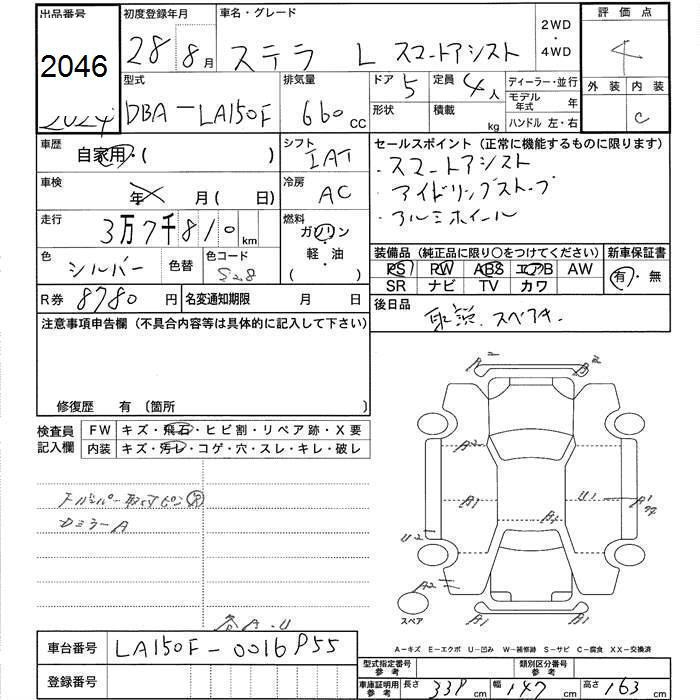 出品番号
2046
初度登録年月
28年 8月
車名・グレード
ステラ L スマートアシスト
2WD
・
4WD
評価点
4
外装 内装
C
型式
DBA-LA150F
排気量
660 cc
ドア 5
形状
定員 4人
積載 kg
ディーラー・並行
モデル年式 年
ハンドル 左・右
車歴
自家用・( )
シフト
IAT
車検
年 月(日)
冷房
AC
走行
3万7千810 km
燃料
ガソリン
・
軽・油
( )
色
シルバー
色替
色コード
S28
R券 8780 円
名変通知期限 月 日
セールスポイント(正常に機能するものに限ります)
・スマートアシスト
・アイドリングストップ
・アルミホイール
装備品(純正品に限り○をつけてください)
新車保証書
PS PW ABS エアB AW
SR ナビ TV カワ
有・無
後日品
取説. スペアキー
注意事項申告欄(不具合内容等は具体的に記入して下さい)
修復歴 有 〔箇所 〕
検査員
記入欄
FW キズ・飛石・ヒビ割・リペア跡・X要
内装 キズ・汚レ・コゲ・穴・スレ・キレ・破レ
Dミラー A
各A・U
A2
A2
A1
U1
A1
U2
A2
スペア
A-キズ E-エクボ U-凹み W-補修跡 S-サビ C-腐食 XX-交換済
車台番号 LA150F-0016955
登録番号
型式指定番号
参考
類別区分番号
参考
車庫証明用
参考
長さ 339 cm 幅 147 cm 高さ 163 cm